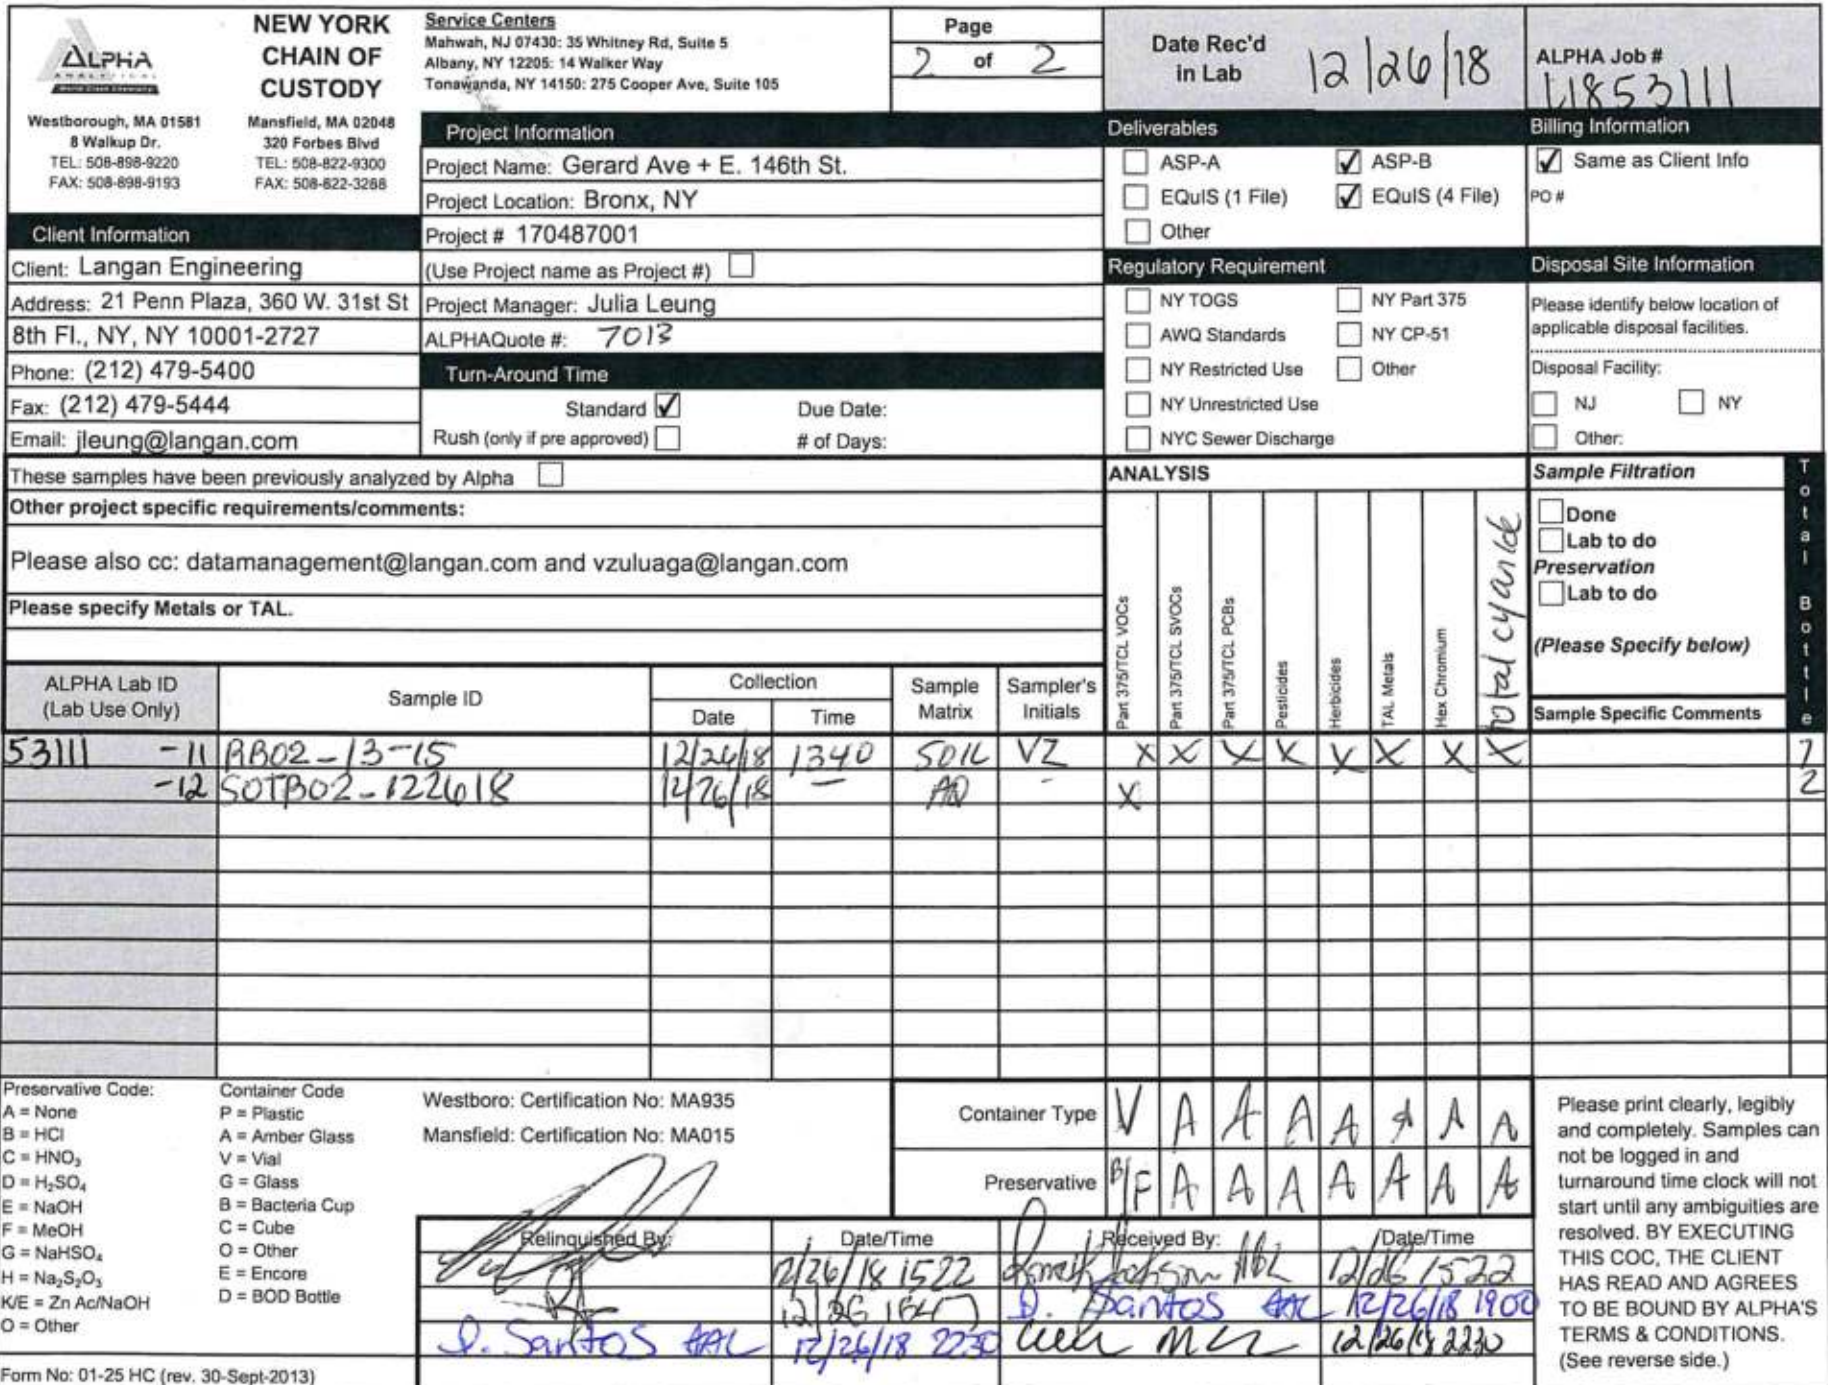 ALPHA
ANALYTICAL
World Class Chemistry
NEW YORK
CHAIN OF
CUSTODY
Westborough, MA 01581
8 Walkup Dr.
TEL: 508-898-9220
FAX: 508-898-9193
Mansfield, MA 02048
320 Forbes Blvd
TEL: 508-822-9300
FAX: 508-822-3288
Service Centers
Mahwah, NJ 07430: 35 Whitney Rd, Suite 5
Albany, NY 12205: 14 Walker Way
Tonawanda, NY 14150: 275 Cooper Ave, Suite 105
Page
2 of 2
Date Rec'd
in Lab
12/26/18
ALPHA Job #
L1853111
Project Information
Project Name: Gerard Ave + E. 146th St.
Project Location: Bronx, NY
Project # 170487001
(Use Project name as Project #)
Project Manager: Julia Leung
ALPHAQuote #: 7013
Turn-Around Time
Standard ✓ Due Date:
Rush (only if pre approved) # of Days:
Client Information
Client: Langan Engineering
Address: 21 Penn Plaza, 360 W. 31st St
8th Fl., NY, NY 10001-2727
Phone: (212) 479-5400
Fax: (212) 479-5444
Email: jleung@langan.com
Deliverables
ASP-A ✓ ASP-B
EQuIS (1 File) ✓ EQuIS (4 File)
Other
Regulatory Requirement
NY TOGS NY Part 375
AWQ Standards NY CP-51
NY Restricted Use Other
NY Unrestricted Use
NYC Sewer Discharge
Billing Information
✓ Same as Client Info
PO #
Disposal Site Information
Please identify below location of
applicable disposal facilities.
Disposal Facility:
NJ NY
Other:
These samples have been previously analyzed by Alpha
Other project specific requirements/comments:
Please also cc: datamanagement@langan.com and vzuluaga@langan.com
Please specify Metals or TAL.
ANALYSIS
Part 375/TCL VOCs
Part 375/TCL SVOCs
Part 375/TCL PCBs
Pesticides
Herbicides
TAL Metals
Hex Chromium
total cyanide
Sample Filtration
Done
Lab to do
Preservation
Lab to do
(Please Specify below)
Sample Specific Comments
Total Bottle
ALPHA Lab ID
(Lab Use Only)
Sample ID
Collection
Date Time
Sample
Matrix
Sampler's
Initials
53111 -11 RB02-13-15 12/24/18 1340 SOIL VZ X X X X X X X X 7
-12 SOTB02-122618 12/26/18 — AQ - X 2
Preservative Code:
A = None
B = HCl
C = HNO₃
D = H₂SO₄
E = NaOH
F = MeOH
G = NaHSO₄
H = Na₂S₂O₃
K/E = Zn Ac/NaOH
O = Other
Container Code
P = Plastic
A = Amber Glass
V = Vial
G = Glass
B = Bacteria Cup
C = Cube
O = Other
E = Encore
D = BOD Bottle
Westboro: Certification No: MA935
Mansfield: Certification No: MA015
Container Type V A A A A A A A
Preservative B/F A A A A A A A
Relinquished By: Date/Time Received By: Date/Time
12/26/18 1522 12/26 1522
12/26 D. Santos AAL 12/26/18 1900
D. Santos AAL 12/26/18 2230 12/26/18 2230
Please print clearly, legibly
and completely. Samples can
not be logged in and
turnaround time clock will not
start until any ambiguities are
resolved. BY EXECUTING
THIS COC, THE CLIENT
HAS READ AND AGREES
TO BE BOUND BY ALPHA'S
TERMS & CONDITIONS.
(See reverse side.)
Form No: 01-25 HC (rev. 30-Sept-2013)